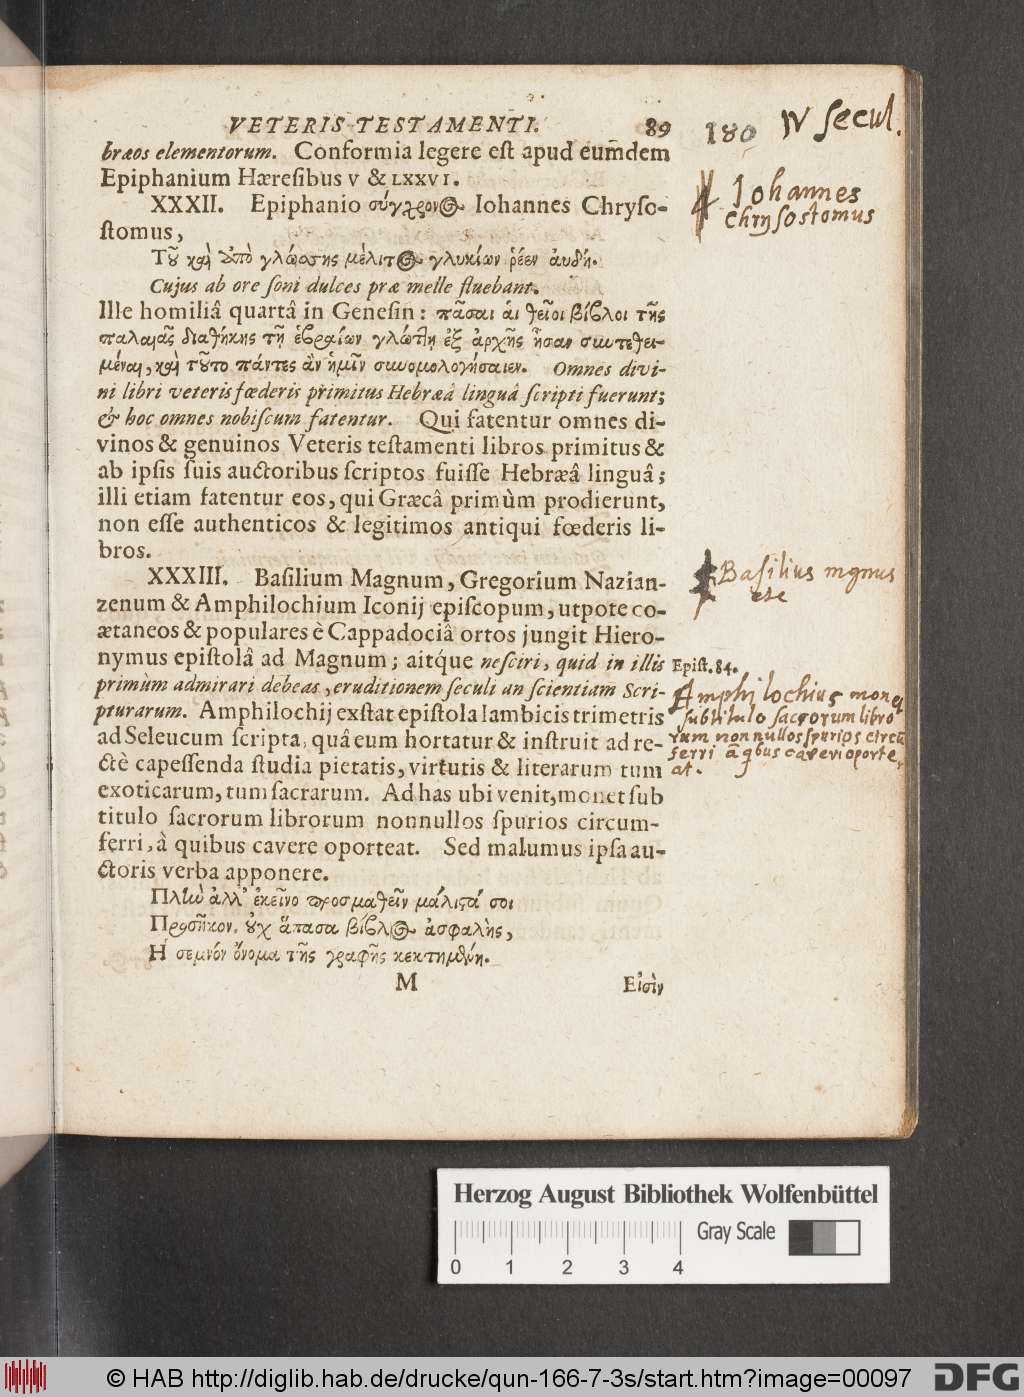 VETERIS TESTAMENTI. 89
180 IV Secul.
bræos elementorum. Conformia legere eſt apud eum̃dem
Epiphanium Hæreſibus V & LXXVI.
XXXII. Epiphanio σύγχρονος Iohannes Chryſo-
ſtomus,
Iohannes
chrysostomus
Τοῦ καὶ ἀπὸ γλώσσης μέλιτος γλυκίων ῥέεν ἀυδή.
Cujus ab ore ſoni dulces præ melle fluebant.
Ille homiliâ quartâ in Geneſin: πᾶσαι ἁι θεῖοι βίβλοι τῆς
παλαιᾶς διαθήκης τῇ ἑβραίων γλώττῃ ἐξ ἀρχῆς ἦσαν συντεθει-
μέναι, καὶ τοῦτο πάντες ἂν ἡμῖν συνομολογήσαιεν. Omnes divi-
ni libri veteris fœderis primitus Hebræâ linguâ ſcripti fuerunt;
& hoc omnes nobiſcum fatentur. Qui fatentur omnes di-
vinos & genuinos Veteris teſtamenti libros primitus &
ab ipſis ſuis auctoribus ſcriptos fuiſſe Hebræâ linguâ;
illi etiam fatentur eos, qui Græcâ primùm prodierunt,
non eſſe authenticos & legitimos antiqui fœderis li-
bros.
XXXIII. Baſilium Magnum, Gregorium Nazian-
Basilius mgnus
etc
zenum & Amphilochium Iconij epiſcopum, utpote co-
ætaneos & populares è Cappadociâ ortos jungit Hiero-
nymus epiſtolâ ad Magnum; aitq́ue neſciri, quid in illis
Epiſt. 84.
primùm admirari debeas, eruditionem ſeculi an ſcientiam Scri-
pturarum. Amphilochij exſtat epiſtola Iambicis trimetris
ad Seleucum ſcripta, quâ eum hortatur & inſtruit ad re-
ctè capeſſenda ſtudia pietatis, virtutis & literarum tum
exoticarum, tum ſacrarum. Ad has ubi venit, monet ſub
titulo ſacrorum librorum nonnullos ſpurios circum-
ferri, à quibus cavere oporteat. Sed malumus ipſa au-
ctoris verba apponere.
Amphilochius monet
sub titulo sacrorum libro
rum nonnullos spurios circū
ferri a qbus caveri oporte
at.
Πλὴν ἀλλ᾽ ἐκεῖνο προσμαθεῖν μάλιστά σοι
Προσῆκον, οὐχ ἅπασα βίβλος ἀσφαλὴς,
Ἡ σεμνόν ὄνομα τῆς γραφῆς κεκτημένη.
M Εἰσὶν
Herzog August Bibliothek Wolfenbüttel
Gray Scale
0 1 2 3 4
© HAB http://diglib.hab.de/drucke/qun-166-7-3s/start.htm?image=00097
DFG